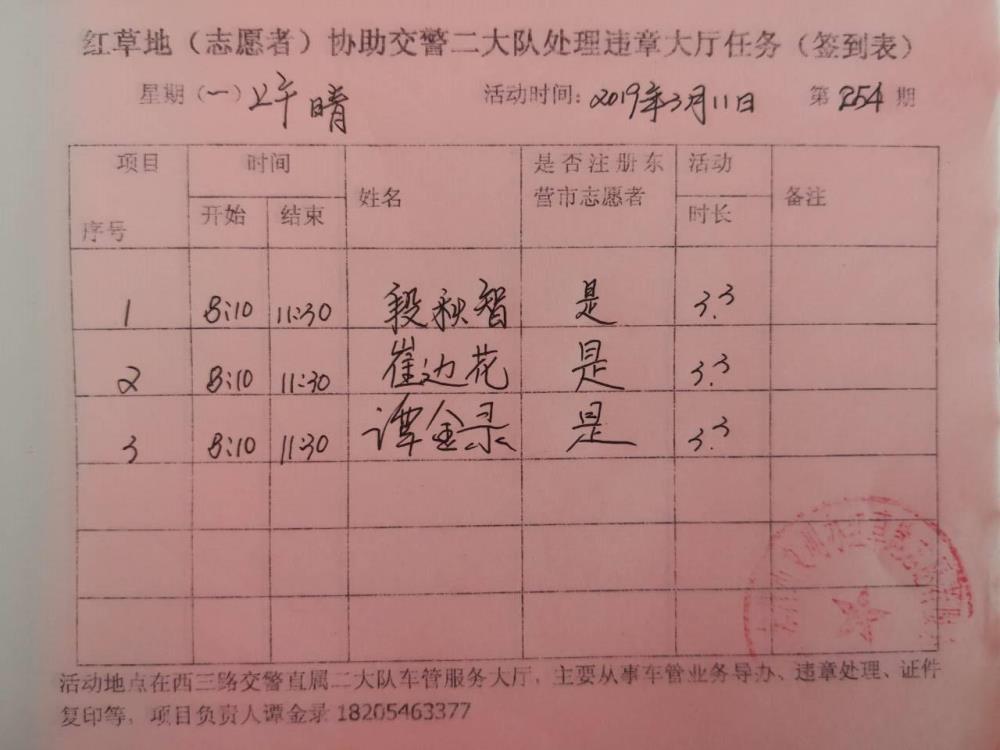 红草地（志愿者）协助交警二大队处理违章大厅任务（签到表）
星期（一）上午 晴 活动时间：2019年3月11日 第254期
项目 时间 姓名 是否注册东营市志愿者 活动时长 备注
序号 开始 结束
1 8:10 11:30 段秋智 是 3.3
2 8:10 11:30 崔边花 是 3.3
3 8:10 11:30 谭金录 是 3.3
活动地点在西三路交警直属二大队车管服务大厅，主要从事车管业务导办、违章处理、证件
复印等，项目负责人谭金录 18205463377